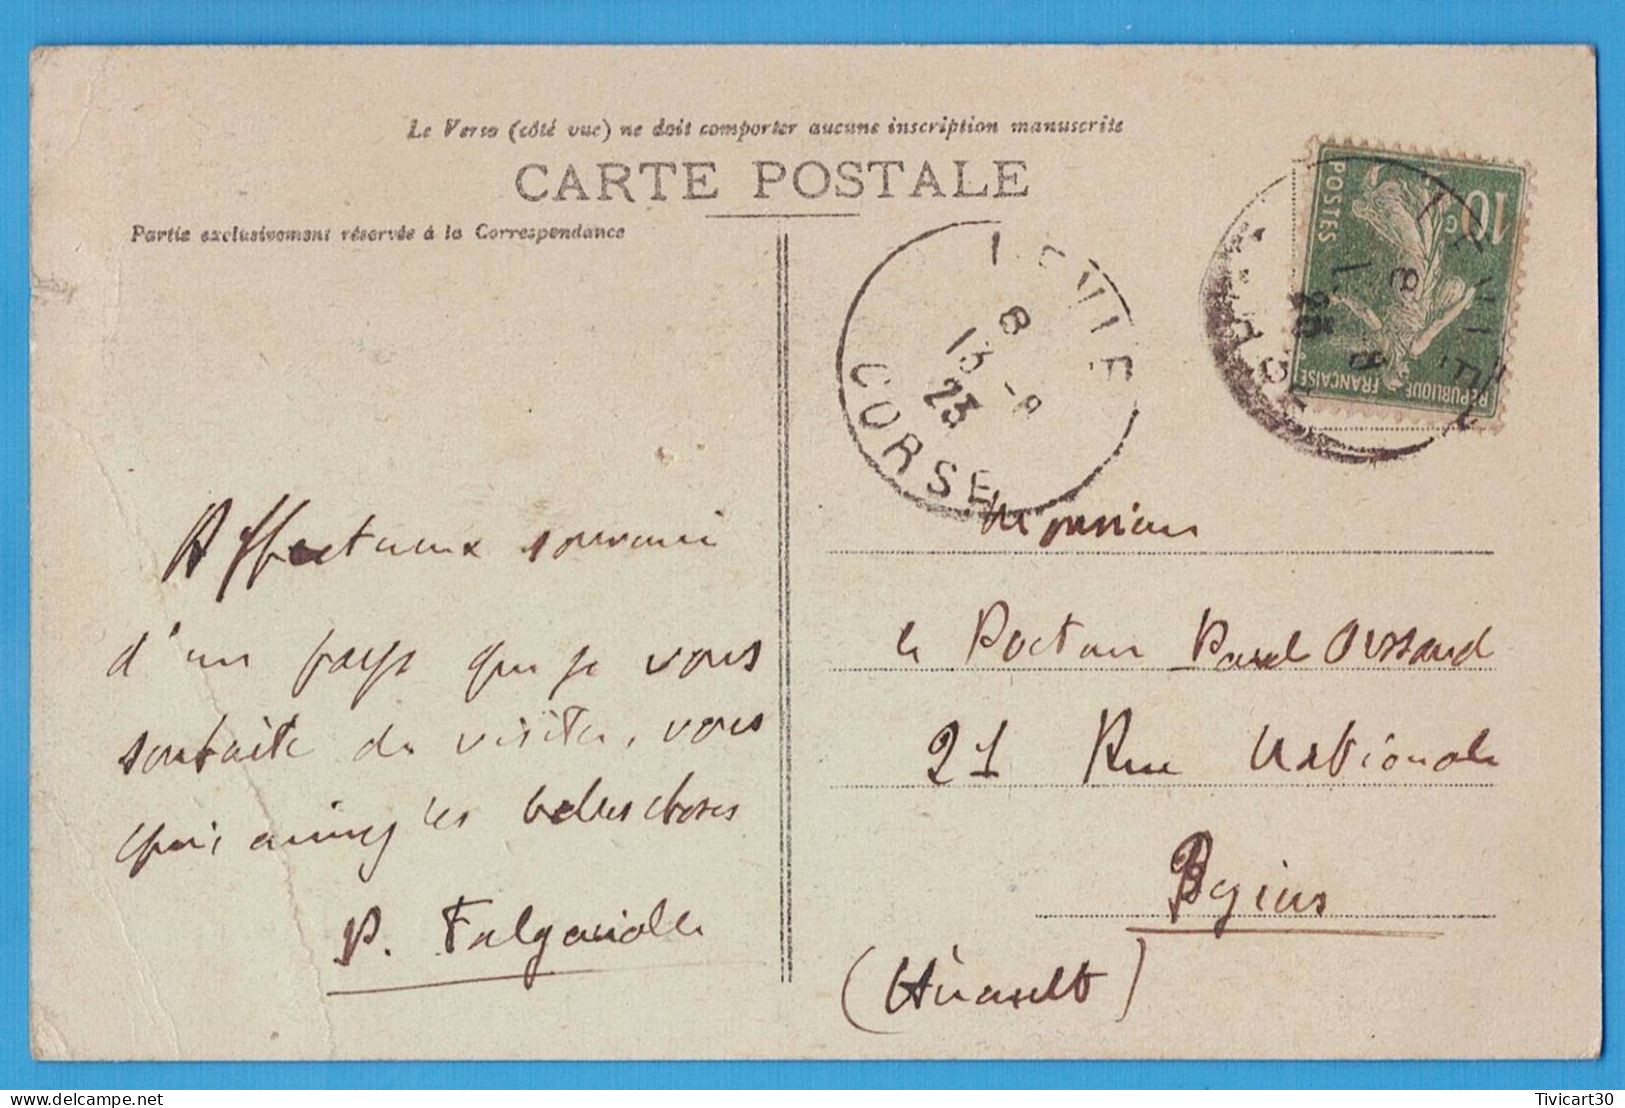 Le Verso (côté vue) ne doit comporter aucune inscription manuscrite
CARTE POSTALE
Partie exclusivement réservée à la Correspondance
LEVIE
8
13 - 8
23
CORSE
10 c
POSTES
REPUBLIQUE FRANCAISE
Affectueux souvenir
d'un pays que je vous
souhaite de visiter, vous
qui aimez les belles choses
P.
Monsieur
le Docteur Paul
21 Rue Nationale
Béziers
(Hérault)
Tivicart30